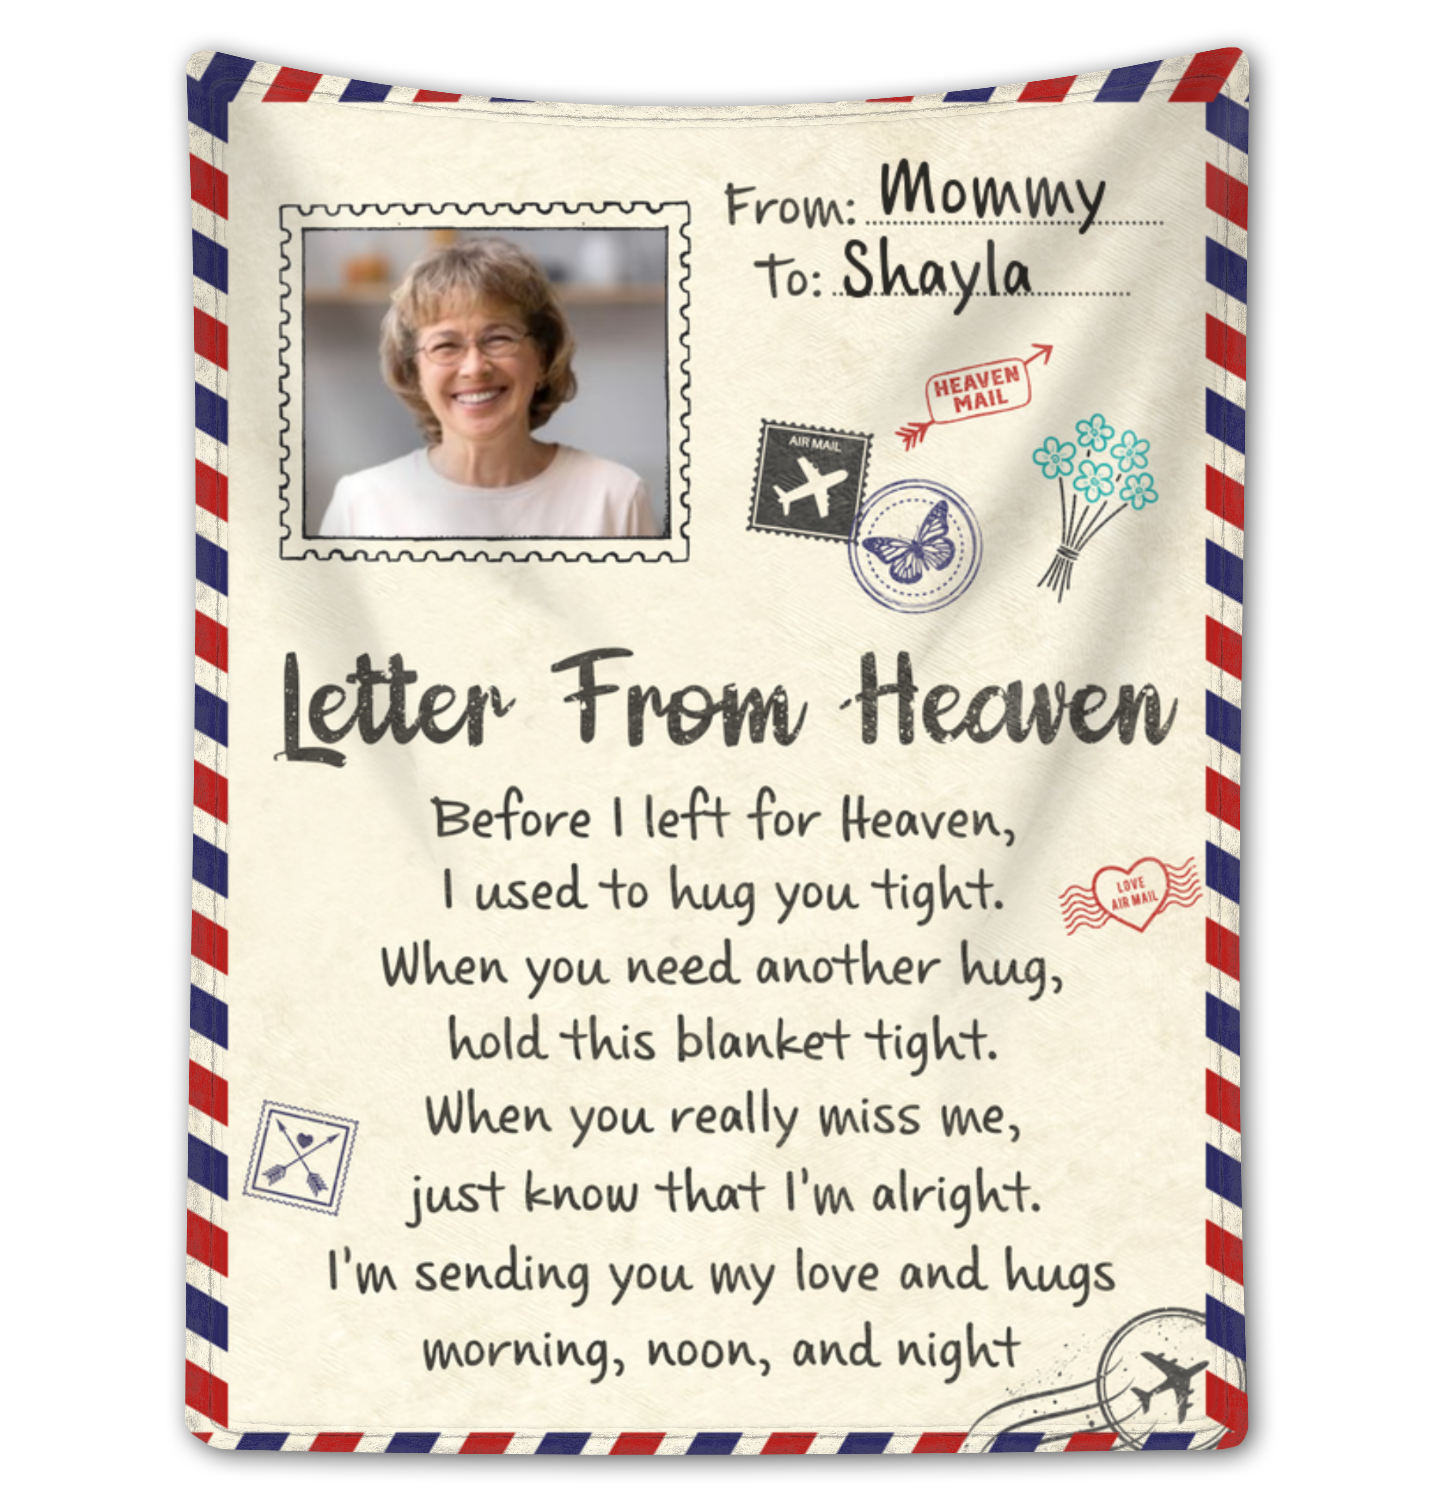 From: Mommy
To: Shayla
HEAVEN
MAIL
AIR MAIL
Letter From Heaven
Before I left for Heaven,
I used to hug you tight.
LOVE
AIR MAIL
When you need another hug,
hold this blanket tight.
When you really miss me,
just know that I'm alright.
I'm sending you my love and hugs
morning, noon, and night